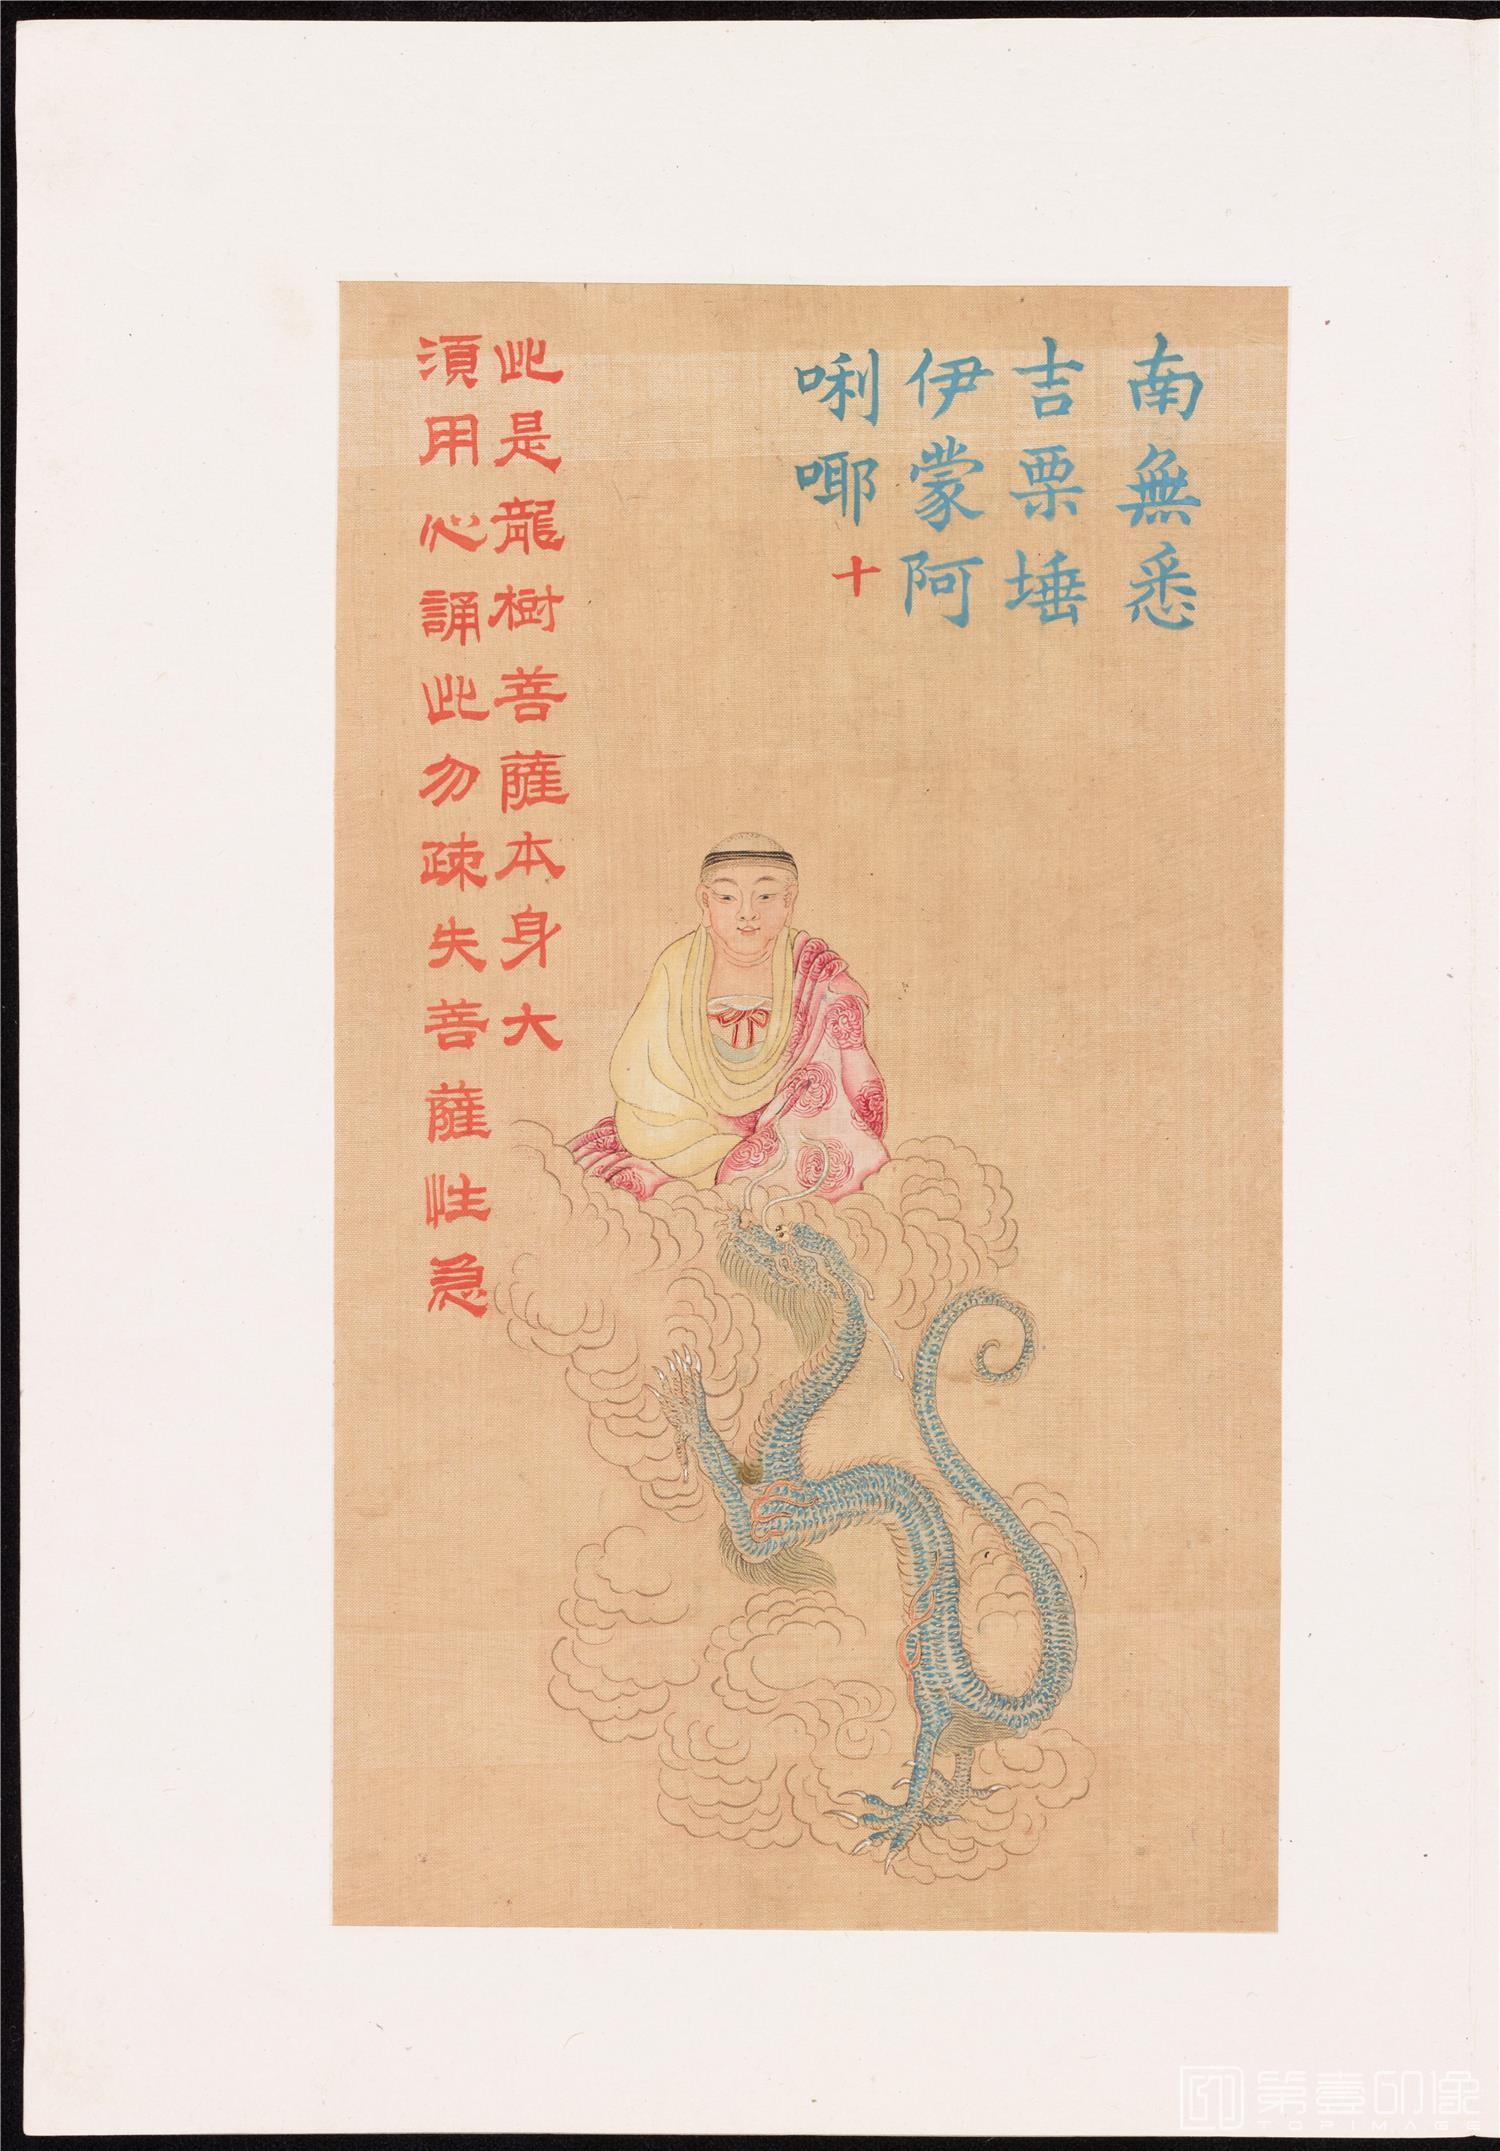 南無悉
吉栗埵
伊蒙阿
唎㖿十
此是龍樹菩薩本身大
須用心誦此勿疎失菩薩性急
第壹印像
TOPIMAGE